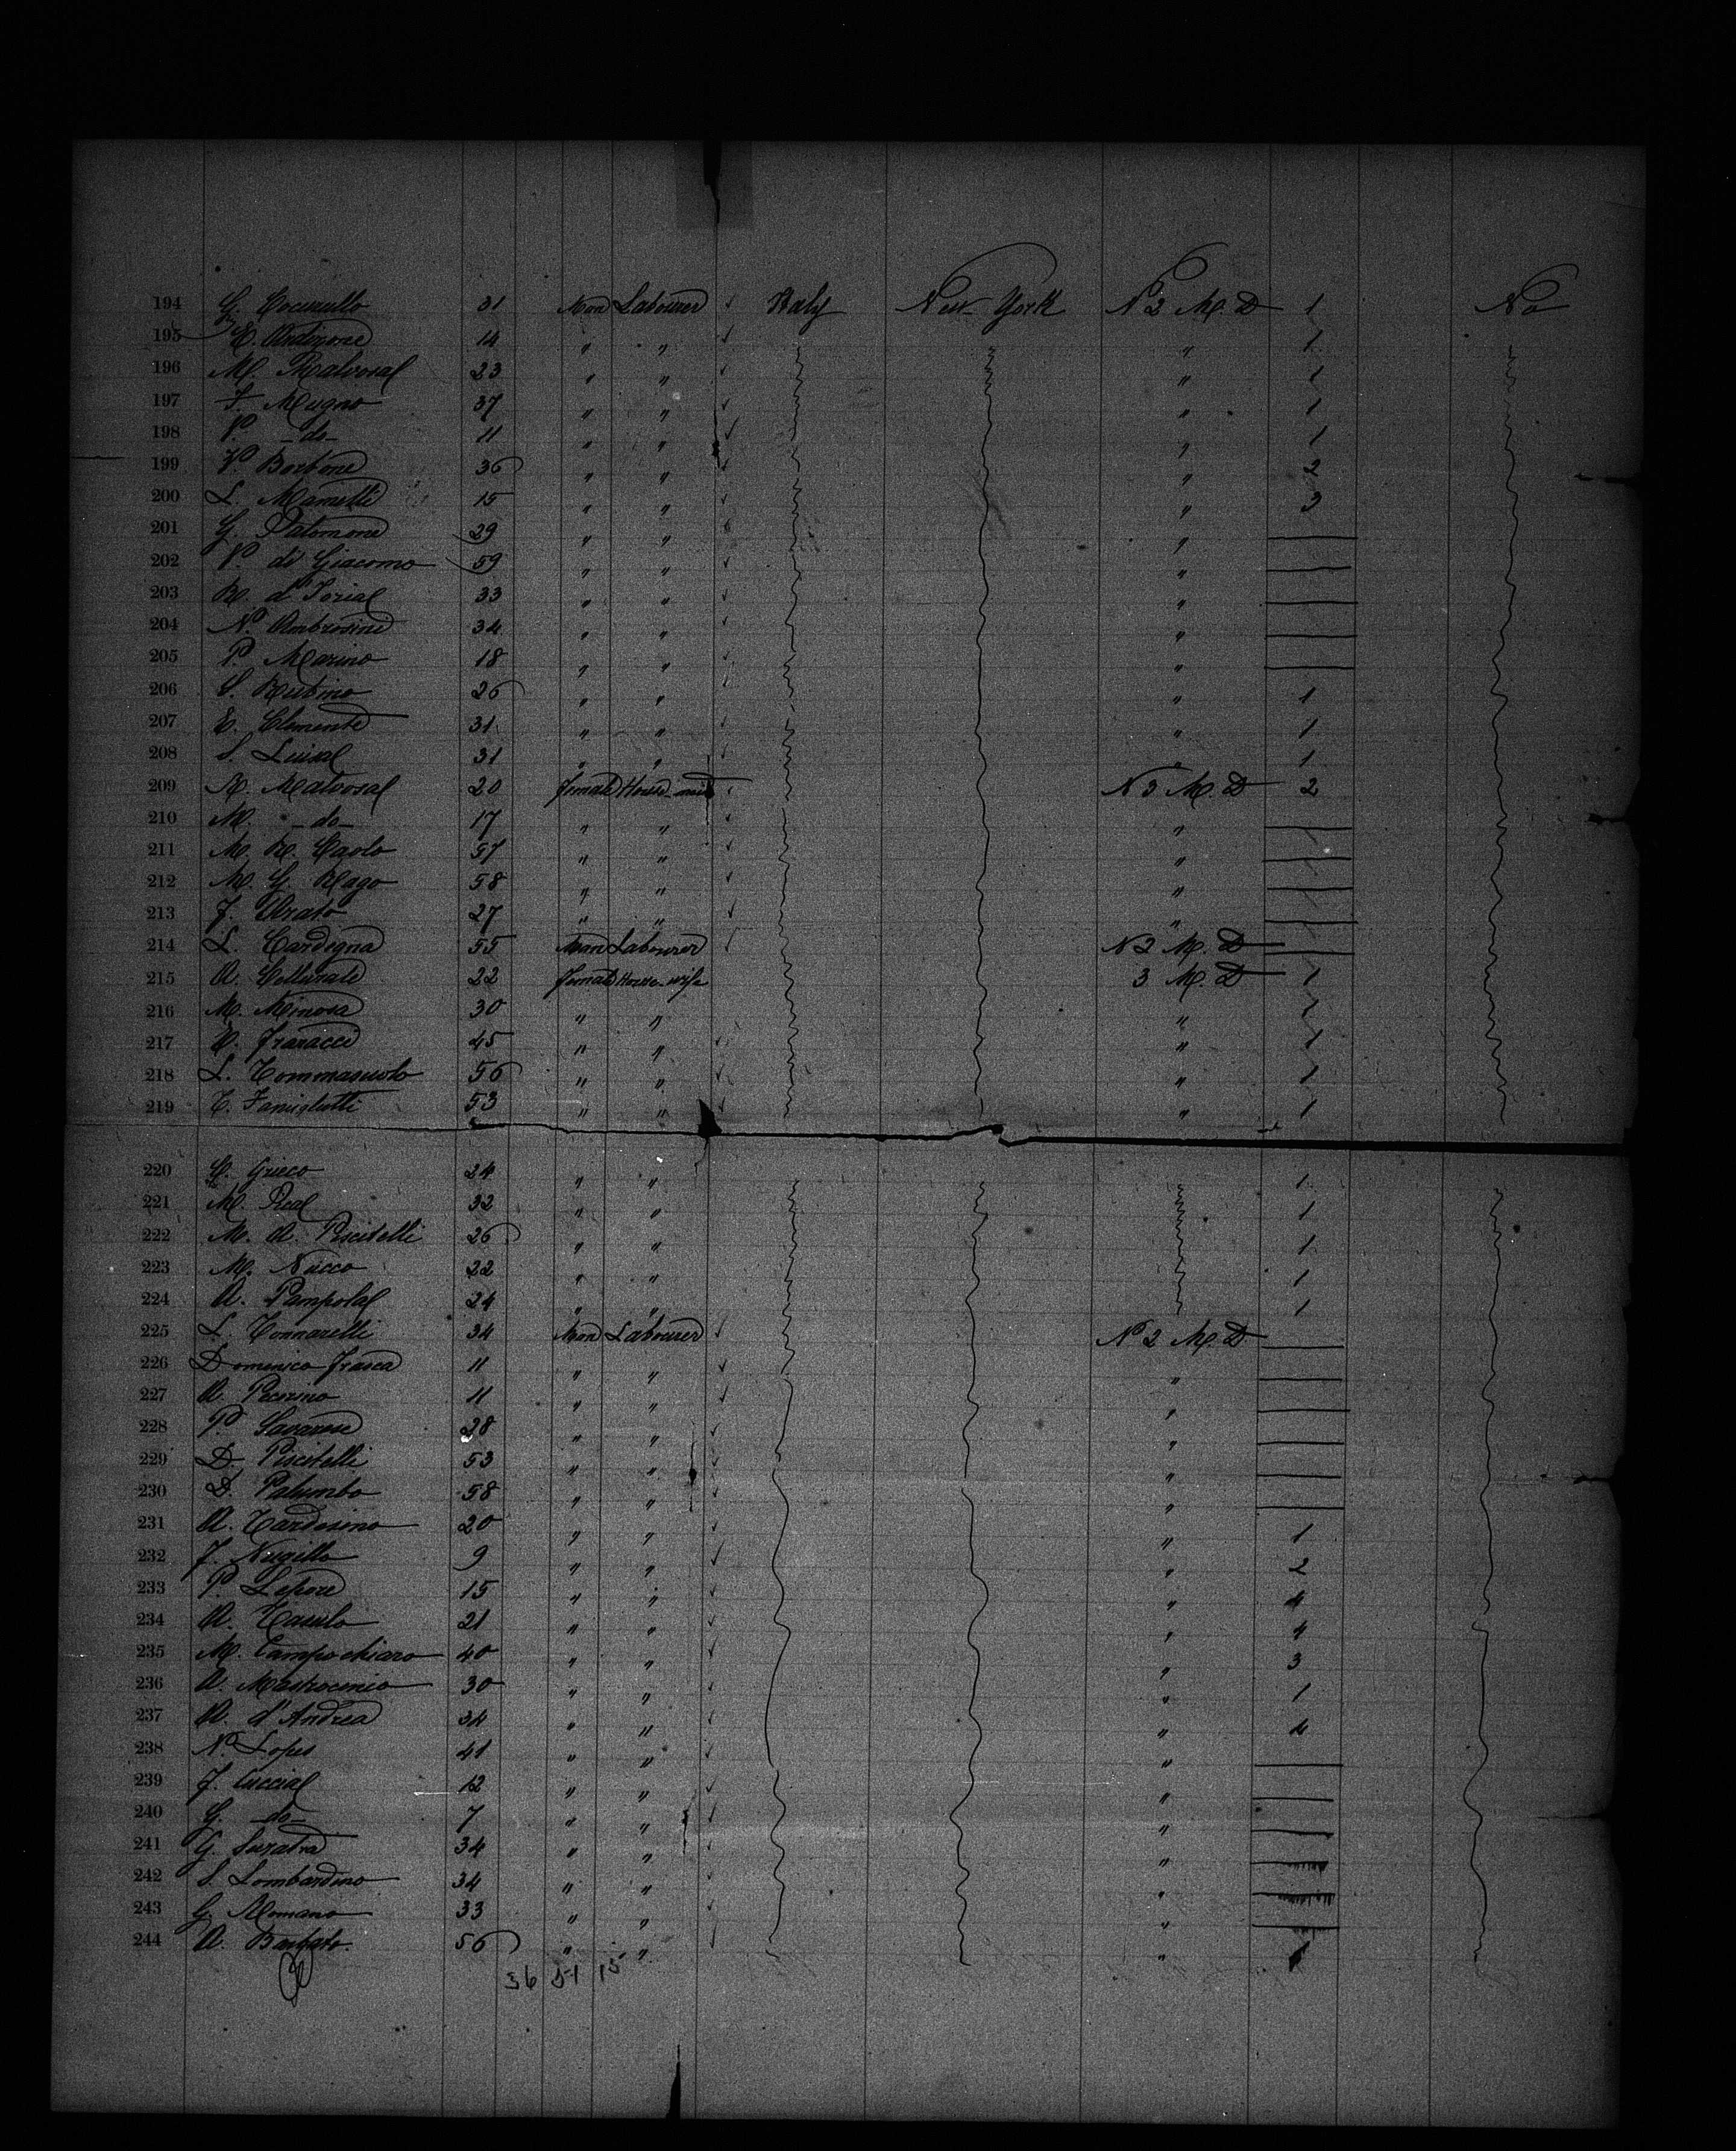 194 G. Cocurullo 31 Man Labourer ✓ Italy New York N 2 M. D 1 No
195 14 " " ✓ " 1
196 M. 23 " " ✓ " 1
197 F. Mugno 37 " " ✓ " 1
198 V. -do- 11 " " ✓ " 1
199 V. Borbone 36 " " ✓ " 2
200 L. 15 " " ✓ " 3
201 G. Palomone 29 " " ✓ " —
202 V. di Giacomo 59 " " ✓ " —
203 33 " " ✓ " —
204 N. Ambrosino 34 " " ✓ " —
205 P. Marino 18 " " ✓ " —
206 S. Rubino 26 " " " 1
207 E. Clemente 31 " " ✓ " 1
208 S. Luisa 31 " " ✓ " 1
209 20 female House-wife N 3 M. D 2
210 M. -do- 17 " " ✓ " —
211 M. R. Paolo 57 " " ✓ " —
212 M. G. Rago 58 " " ✓ " —
213 F. 27 " " ✓ " —
214 L. Cardegna 55 Man Labourer ✓ N 2 M. D —
215 A. 22 female House-wife 3 M. D 1
216 M. Minosa 30 " " " 1
217 45 " " ✓ " 1
218 L. Tommasuolo 56 " " ✓ " 1
219 T. Famiglietti 53 " " ✓ " 1
220 Grieco 24 " " 1
221 M. Real 32 " " 1
222 M. A. Piscitelli 26 " " 1
223 M. Nucco 22 " " 1
224 A. 24 " " 1
225 L. Tonnarelli 34 Man Labourer ✓ N 2 M. D —
226 Domenico Frasca 11 " " ✓ " —
227 A. Pecorino 11 " " ✓ " —
228 P. Savarese 28 " " ✓ " —
229 D. Piscitelli 53 " " ✓ " —
230 D. Palumbo 58 " " ✓ " —
231 A. Tardosino 20 " " ✓ " 1
232 F. 9 " " ✓ " 2
233 P. Lepore 15 " " ✓ " 4
234 A. 21 " " ✓ " 4
235 M. Campochiaro 40 " " ✓ " 3
236 A. 30 " " ✓ " 1
237 A. d'Andrea 34 " " ✓ " 4
238 N. Lopes 41 " " ✓ " —
239 F. 12 " " ✓ " —
240 G. -do- 7 " " ✓ " —
241 G. 34 " " ✓ " —
242 S. Lombardino 34 " " ✓ " —
243 G. Romano 33 " " ✓ " —
244 A. Barbato. 56 " " " 1
36 51 15